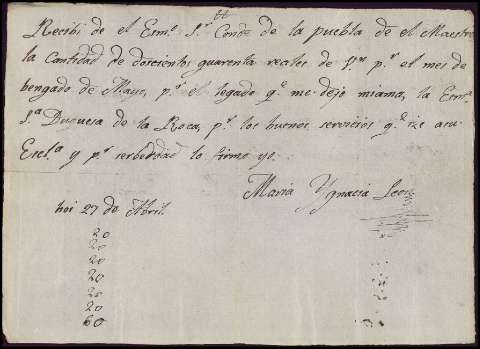 Recibi de el Exmo. Sr. Conde de la puebla de el Maestre
la Cantidad de doscientos quarenta reales de Vn. pr. el mes de
bengado de Mayo, pr. el legado qe. me dejo miama, la Exma.
Sa. Duquesa de la Roca, pr. los buenos servicios qe. ize asu
Excla. y pr. serberdad lo firmo yo.
Maria Ygnacia Leon
hoi 27 de Abril
20
20
20
20
20
20
60